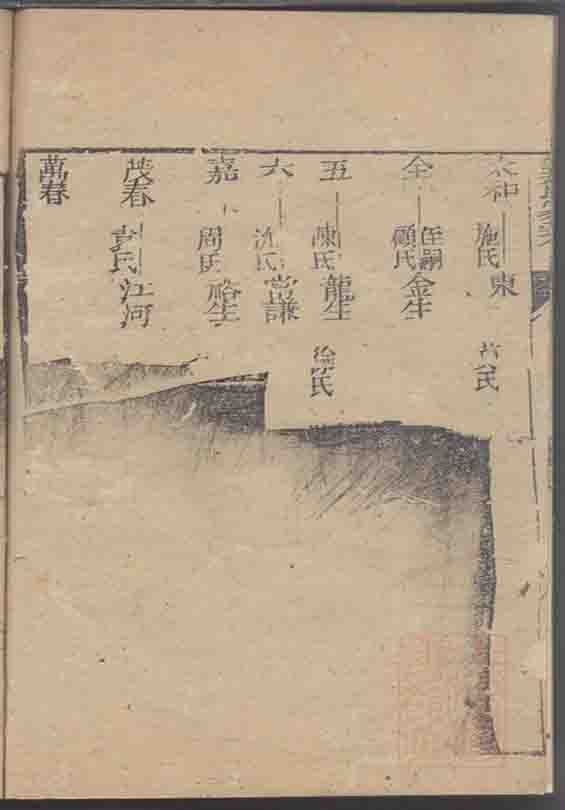 太和 施氏 東 許氏
全 侄嗣 顧氏 金生
五 陳氏 龍生 徐氏
六 沈氏 常謙
嘉 周氏 啓生
茂春 彭氏 江河
萬春